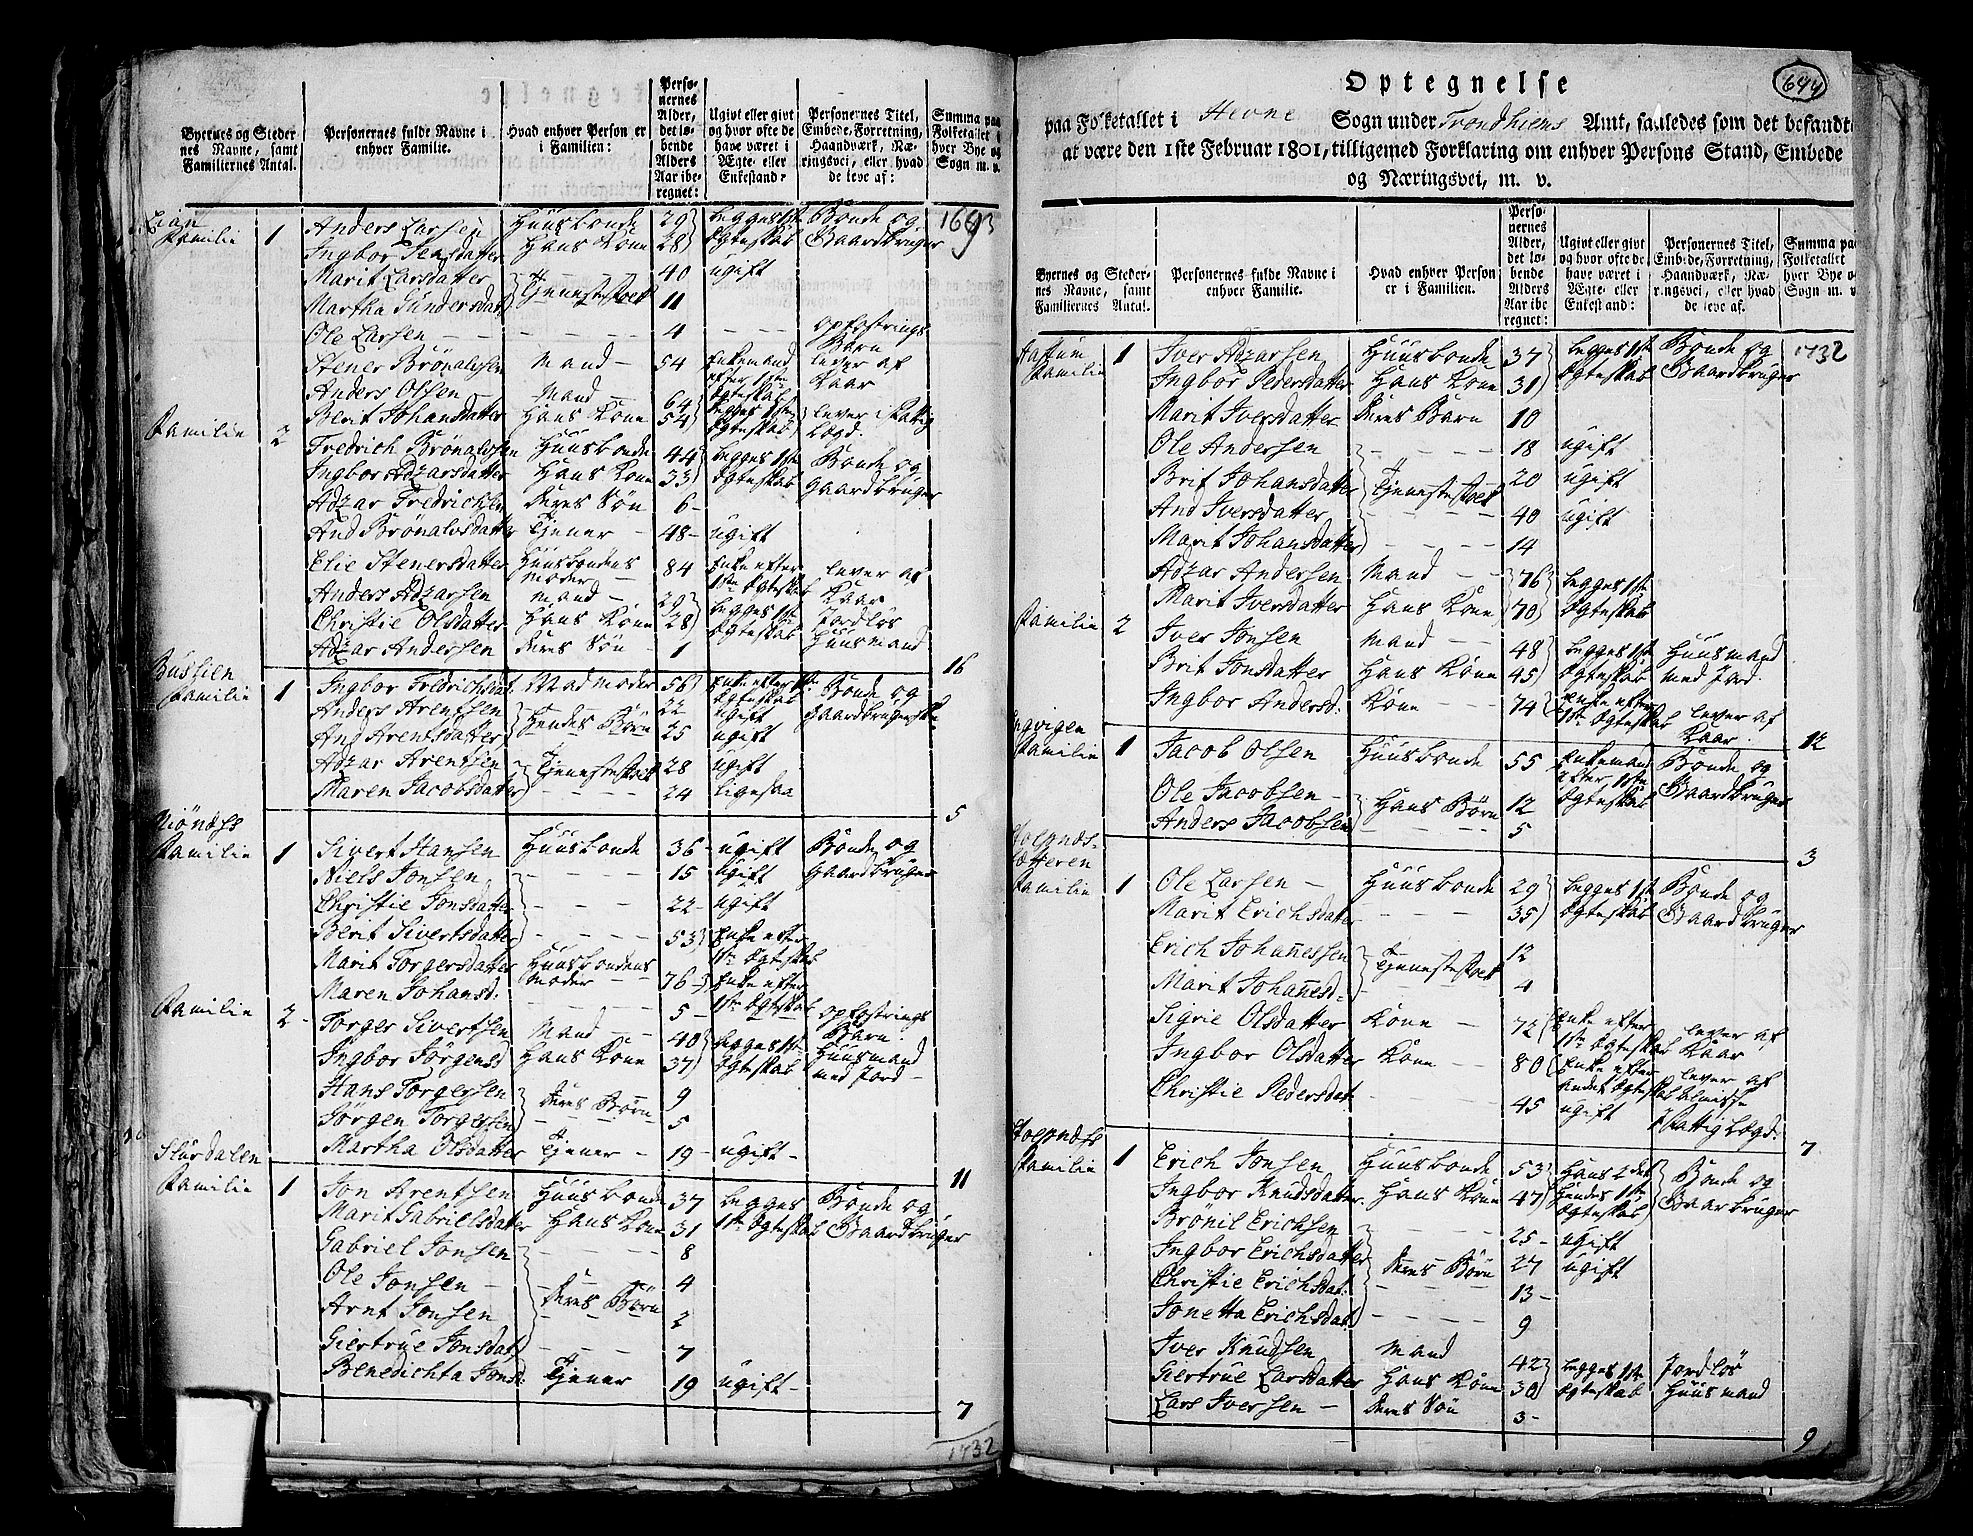 Byernes og Steder- nes Navne, samt Familiernes Antal. | Personernes fulde Navne i enhver Familie. | Hvad enhver Person er i Familien: | Perso- nernes Alder, det lø- bende Alders Aar ibe- regnet: | Ugivt eller givt og hvor ofte de have været i Ægte- eller Enkestand: | Personernes Titel, Embede, Forretning, Haandværk, Næ- ringsvei, eller hvad de leve af: | Summa paa Folketallet i hver Bye og Sogn m. v.
Lian
Familie 1 Anders Larsen Huusbonde 29 begges 1ste Bonde og 1693
Ingbor Jensdatter Hans Kone 28 Ægteskab Gaardbruger
Marit Larsdatter 40 ugift
Martha Gundersdat Tjenestefolk 11
Ole Larsen 4 opfostrings Barn
Stener Brönalvsen Mand 54 Enkemand efter 1ste Ægteskab lever af Kaar
Anders Olsen Mand 64 begges 1ste lever i Fattig
Berit Johansdatter Hans Kone 54 Ægteskab Lægd.
Familie 2 Fredrich Brönalvsen Huusbonde 44 begges 1ste Bonde og
Ingbor Adzarsdatter Hans Kone 33 Ægteskab Gaardbruger
Adzar Fredrichsen deres Sön 6
And Brönalvsdatter Tjener 48 ugift
Elie Stenersdatter Huusbondens Moder 84 Enke efter 1ste Ægteskab lever af Kaar
Anders Adzarsen Mand 29 begges 1ste Jordlös
Christie Olsdatter Hans Kone 28 Ægteskab Huusmand
Adzar Andersen deres Sön 1
16
Familie 1 Ingbor Fredrichsdat Madmoder 56 Enke efter 1ste Ægteskab Bonde og
Anders Arentsen 22 ugift Gaardbrugerske
And Arentsdatter Hendes Börn 25 ugift
Adzar Arentsen Tjenestefolk 28 ugift
Maren Jacobsdatter 24 ligesaa
5
Familie 1 Sivert Hansen Huusbonde 36 ugift Bonde og
Niels Jonsen 15 ugift Gaardbruger
Christie Jonsdatter 22 ugift
Berit Sivertsdatter 53 Enke efter 1ste Ægteskab
Marit Torgersdatter Huusbondens Moder 76 Enke efter 1ste Ægteskab
Maren Johansd: 5 opfostrings Barn.
Familie 2 Torger Sivertsen Mand 40 begges 1ste Huusmand
Ingbor Jörgensd Hans Kone 37 Ægteskab med Jord
Hans Torgersen 9
Jörgen Torgersen deres Börn 5
Martha Olsdatter Tjener 19 ugift
11
Slördalen
Familie 1 Jon Arentsen Huusbonde 37 begges Bonde og
Marit Gabrielsdatter Hans Kone 31 1ste Ægteskab Gaardbruger
Gabriel Jonsen 8
Ole Jonsen 4
Arnt Jonsen deres Börn 2
Giertrue Jonsdat 7
Benedichta Jonsd: Tjener 19 ugift
7
1732
Optegnelse 644
paa Folketallet i Hevne Sogn under Trondhiems Amt, saaledes som det befandtes
at være den 1ste Februar 1801, tilligemed Forklaring om enhver Persons Stand, Embede
og Næringsvei, m. v.
Byernes og Steder- nes Navne, samt Familiernes Antal. | Personernes fulde Navne i enhver Familie. | Hvad enhver Person er i Familien. | Perso- nernes Alder, det lø- bende Alders Aar ibe regnet: | Ugivt eller givt og hvor ofte de have været i Ægte- eller Enkestand: | Personernes Titel, Embede, Forretning, Haandværk, Næ- ringsvei, eller hvad de leve af. | Summa paa Folketallet i hver Bye o Sogn m. v.
Familie 1 Iver Adzarsen Huusbonde 37 begges 1ste Bonde og 1732
Ingbor Pedersdatter Hans Kone 31 Ægteskab Gaardbruger
Marit Iversdatter deres Barn 10
Ole Andersen 18 ugift
Brit Johansdatter Tjenestefolk 20 ugift
And Iversdatter 40 ugift
Marit Johansdatter 14
Adzar Andersen Mand 76 begges 1ste
Marit Iversdatter Hans Kone 70 Ægteskab
Familie 2 Iver Jonsen Mand 48 begges 1ste Huusmand
Brit Jonsdatter Hans Kone 45 Ægteskab med Jord.
Ingbor Andersd: Kone 74 Enke efter 1ste Ægteskab lever af Kaar.
12
Engvigen
Familie 1 Jacob Olsen Huusbonde 55 Enkemand efter 1ste Ægteskab Bonde og
Ole Jacobsen 12 Gaardbruger
Anders Jacobsen Hans Börn 5
3
Familie 1 Ole Larsen Huusbonde 29 begges 1ste Bonde og
Marit Erichsdatter 35 Ægteskab Gaardbruger
Erich Johannessen Tjenestefolk 12
Marit Johannesd: 4
Sigrie Olsdatter Kone 72 Enke efter 1ste Ægteskab lever af Kaar
Ingbor Olsdatter Kone 80 Enke efter andet Ægteskab lever af Almisse
Christie Pedersdat 45 ugift i Fattig Lægd.
7
Familie 1 Erich Jonsen Huusbonde 53 Hans 2det Bonde og
Ingbor Knudsdatter Hans Kone 47 Hendes 1ste Ægteskab Gaarbruger
Brönil Erichsen 25 ugift
Ingbor Erichsdatter deres Börn 27 ugift
Christie Erichsdat: 13
Jonetta Erichsdat. 9
Iver Knudsen Mand 42 begges 1ste Jordlös
Giertrue Larsdatter Hans Kone 30 Ægteskab Huusmand
Lars Iversen deres Sön 3
9